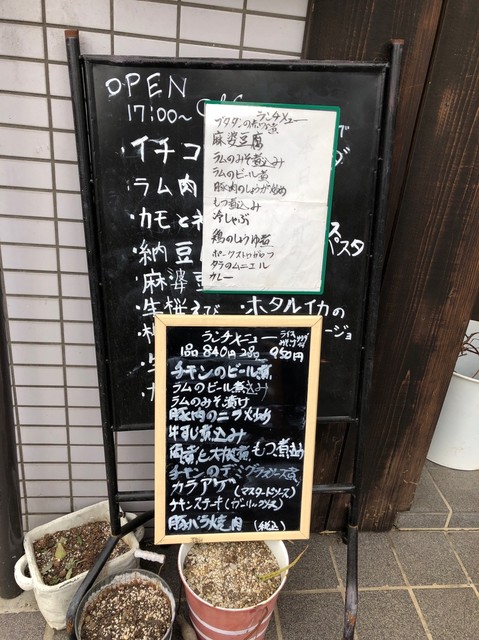 OPEN
17:00〜
・イチコ
・ラム肉
・カモとネ
・納豆
パスタ
・麻婆豆
・生桜えび
・ホタルイカの
ージョ
ランチメニュー
麻婆豆腐
ラムのみそ煮込み
ラムのビール煮
豚肉のしょうが炒め
もつ煮込み
冷しゃぶ
鶏のしょうゆ煮
タラのムニエル
カレー
ランチメニュー
ライス
1品 840円 2品 950円
チキンのビール煮
ラムのビール煮込み
ラムのみそ漬け
豚肉のニラ炒め
牛すじ煮込み
もつ煮込み
チキンのデミグラスソース煮
カラアゲ(マスタードソース)
チキンステーキ(ガーリックソース)
豚バラ焼肉 (税込)